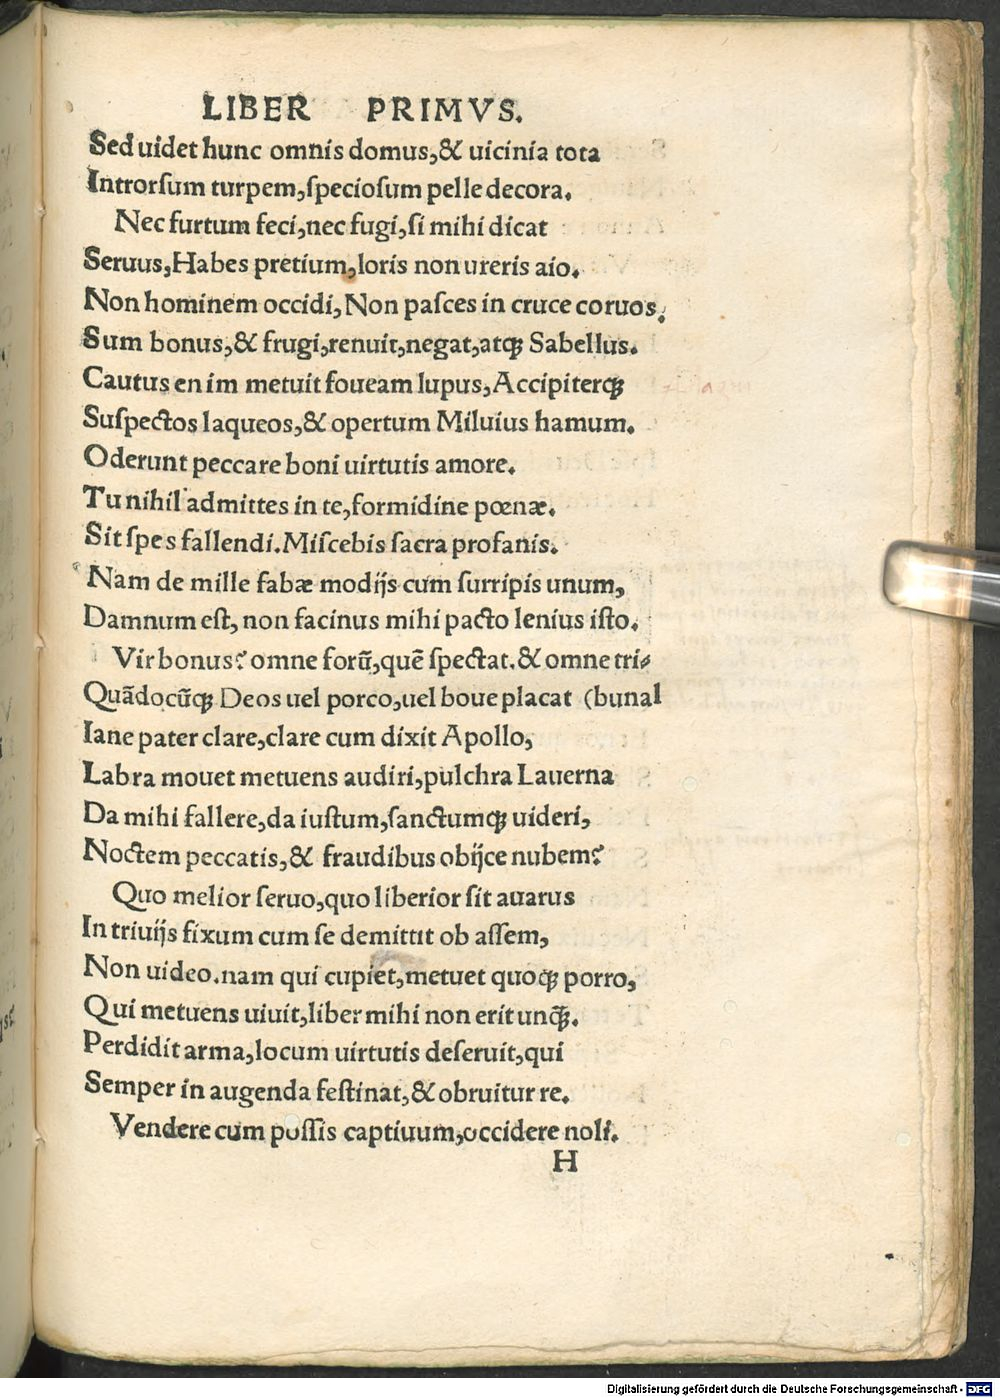 LIBER PRIMVS.
Sed uidet hunc omnis domus,& uicinia tota
Introrſum turpem,ſpecioſum pelle decora.
Nec furtum feci,nec fugi,ſi mihi dicat
Seruus,Habes pretium,loris non ureris aio.
Non hominem occidi,Non paſces in cruce coruos.
Sum bonus,& frugi,renuit,negat,atqꝫ Sabellus.
Cautus enim metuit foueam lupus,Accipiterqꝫ
Suſpectos laqueos,& opertum Miluius hamum.
Oderunt peccare boni uirtutis amore.
Tu nihil admittes in te,formidine pœnæ.
Sit ſpes fallendi.Miſcebis ſacra profanis.
Nam de mille fabæ modijs cum ſurripis unum,
Damnum eſt, non facinus mihi pacto lenius iſto.
Vir bonus? omne forū,quē ſpectat.& omne tri-
Quādocūqꝫ Deos uel porco,uel boue placat (bunal
Iane pater clare,clare cum dixit Apollo,
Labra mouet metuens audiri,pulchra Lauerna
Da mihi fallere,da iuſtum,ſanctumqꝫ uideri,
Noctem peccatis,& fraudibus obijce nubem?
Quo melior ſeruo,quo liberior ſit auarus
In triuijs fixum cum ſe demittit ob aſſem,
Non uideo.nam qui cupiet,metuet quoqꝫ porro,
Qui metuens uiuit,liber mihi non erit unqꝫ̄.
Perdidit arma,locum uirtutis deſeruit,qui
Semper in augenda feſtinat,& obruitur re.
Vendere cum poſſis captiuum,occidere noli.
H
Digitalisierung gefördert durch die Deutsche Forschungsgemeinschaft - DFG